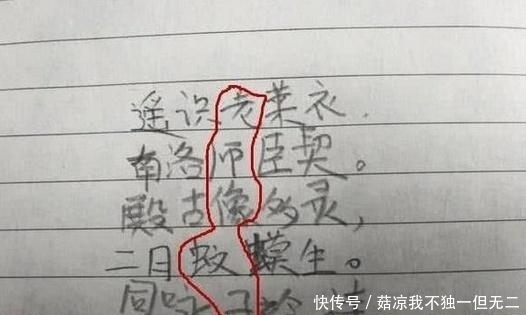 遥识老莱衣.
南洛师臣契。
殿古像多灵,
二日蚊蟆生。
同咏子
快传号/菇凉我不独一但无二